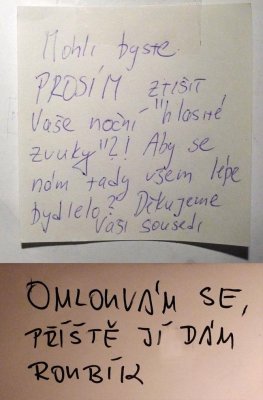 Mohli byste
PROSÍM ztišit
Vaše noční "hlasité
zvuky"?! Aby se
nám tady všem lépe
bydlelo? Děkujeme
Vaši sousedi
OMLOUVÁM SE,
PŘÍŠTĚ JÍ DÁM
ROUBÍK